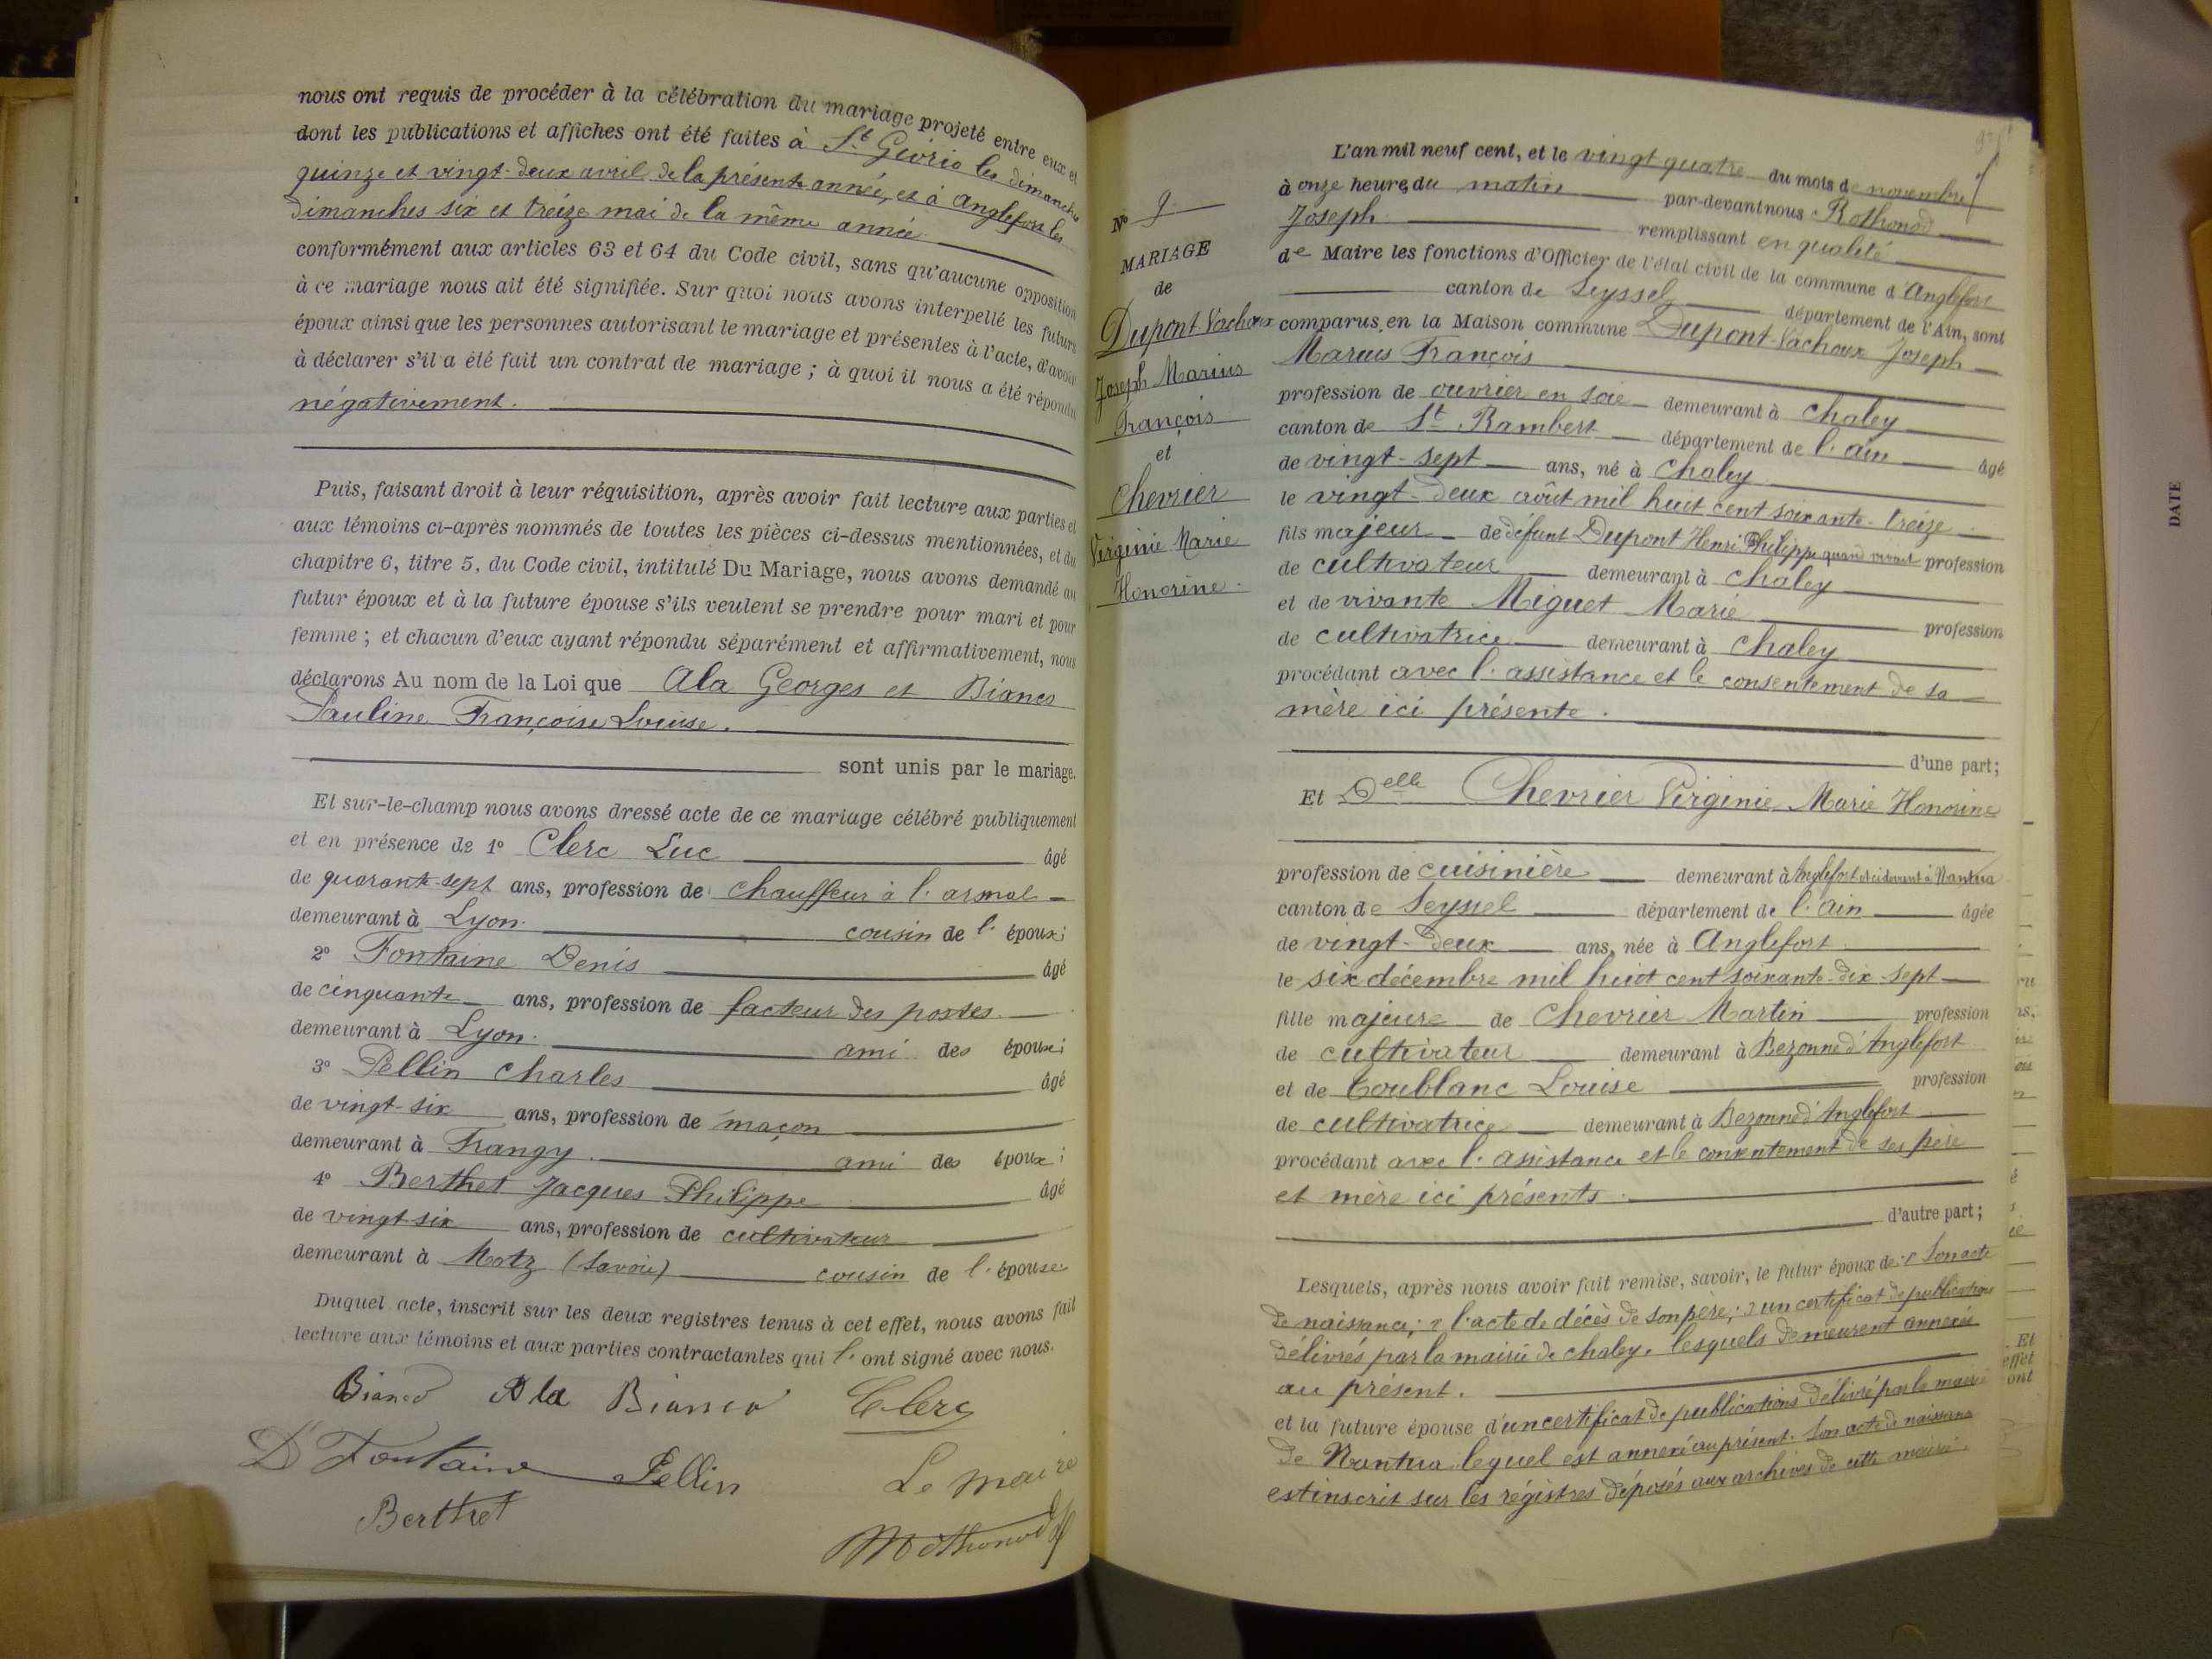 nous ont requis de procéder à la célébration du mariage projeté entre eux et
dont les publications et affiches ont été faites à St Geirie les dimanches
quinze et vingt-deux avril de la présente année, et à Anglefort les
dimanches six et treize mai de la même année
conformément aux articles 63 et 64 du Code civil, sans qu'aucune opposition
à ce mariage nous ait été signifiée. Sur quoi nous avons interpellé les futurs
époux ainsi que les personnes autorisant le mariage et présentes à l'acte, d'avoir
à déclarer s'il a été fait un contrat de mariage ; à quoi il nous a été répondu
négativement.
Puis, faisant droit à leur réquisition, après avoir fait lecture aux parties et
aux témoins ci-après nommés de toutes les pièces ci-dessus mentionnées, et du
chapitre 6, titre 5, du Code civil, intitulé Du Mariage, nous avons demandé au
futur époux et à la future épouse s'ils veulent se prendre pour mari et pour
femme ; et chacun d'eux ayant répondu séparément et affirmativement, nous
déclarons Au nom de la Loi que Ala Georges et Bianco
Pauline Françoise Louise.
sont unis par le mariage.
Et sur-le-champ nous avons dressé acte de ce mariage célébré publiquement
et en présence de 1° Clerc Luc âgé
de quarante-sept ans, profession de chauffeur à l'arsnal
demeurant à Lyon. cousin de l'époux;
2° Fontaine Denis âgé
de cinquante ans, profession de facteur des postes
demeurant à Lyon. ami des époux;
3° Pellin Charles âgé
de vingt-six ans, profession de maçon
demeurant à Frangy. ami des époux;
4° Berthet Jacques Philippe âgé
de vingt-six ans, profession de cultivateur
demeurant à Motz (Savoie) cousin de l'épouse.
Duquel acte, inscrit sur les deux registres tenus à cet effet, nous avons fait
lecture aux témoins et aux parties contractantes qui l'ont signé avec nous.
Bianco Ala Bianco Clerc
D Fontaine Pellin Le maire
Berthet
N° 9
MARIAGE
de
Dupont Vachoux
Joseph Marius
François
et
Chevrier
Virginie Marie
Honorine.
L'an mil neuf cent, et le vingt quatre du mois de novembre
à onze heures du matin par-devant nous Rothonod
Joseph remplissant en qualité
de Maire les fonctions d'Officier de l'état civil de la commune d'Anglefort
canton de Seyssel département de l'Ain, sont
comparus en la Maison commune Dupont-Vachoux Joseph
Marius François
profession de ouvrier en soie demeurant à Chaley
canton de St Rambert département de l'ain âgé
de vingt-sept ans, né à Chaley
le vingt-deux août mil huit cent soixante-treize
fils majeur de défunt Dupont Henri Philippe quand vivait profession
de cultivateur demeurant à Chaley
et de vivante Miguet Marie profession
de cultivatrice demeurant à Chaley
procédant avec l'assistance et le consentement de sa
mère ici présente.
d'une part;
Et Delle Chevrier Virginie Marie Honorine
profession de cuisinière demeurant à Anglefort et ci devant à Nantua
canton de Seyssel département de l'ain âgée
de vingt-deux ans, née à Anglefort
le six décembre mil huit cent soixante-dix-sept
fille majeure de Chevrier Martin profession
de cultivateur demeurant à Bezonne d'Anglefort
et de Coublanc Louise profession
de cultivatrice demeurant à Bezonne d'Anglefort
procédant avec l'assistance et le consentement de ses père
et mère ici présents.
d'autre part;
Lesquels, après nous avoir fait remise, savoir, le futur époux de: 1° Son acte
de naissance; 2° l'acte de décès de son père; 3° un certificat de publications
délivrés par la mairie de Chaley, lesquels demeurent annexés
au présent.
et la future épouse d'un certificat de publications délivré par la mairie
de Nantua lequel est annexé au présent. Son acte de naissance
est inscrit sur les régistres déposés aux archives de cette mairie.
DATE